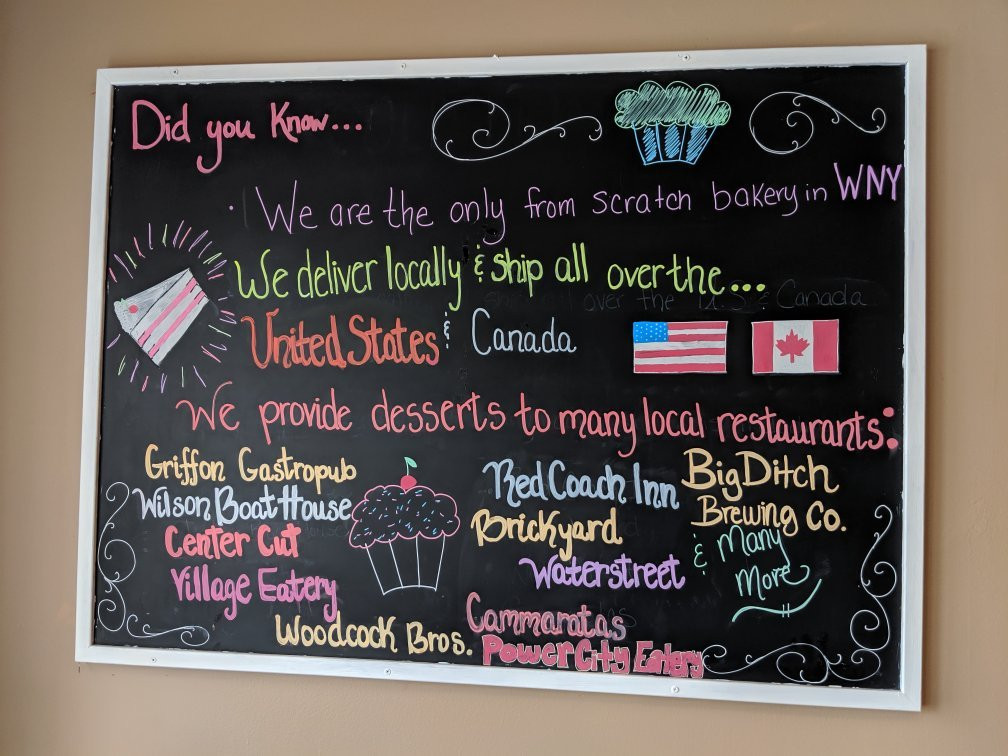 Did you Know...
· We are the only from scratch bakery in WNY
We deliver locally & ship all over the...
over the U.S & Canada
United States & Canada
We provide desserts to many local restaurants:
Griffon Gastropub
Wilson Boat House
Center Cut
Village Eatery
Woodcock Bros.
Red Coach Inn
Brickyard
Waterstreet
Cammaratas
Power City Eatery
Big Ditch
Brewing Co.
& Many
More